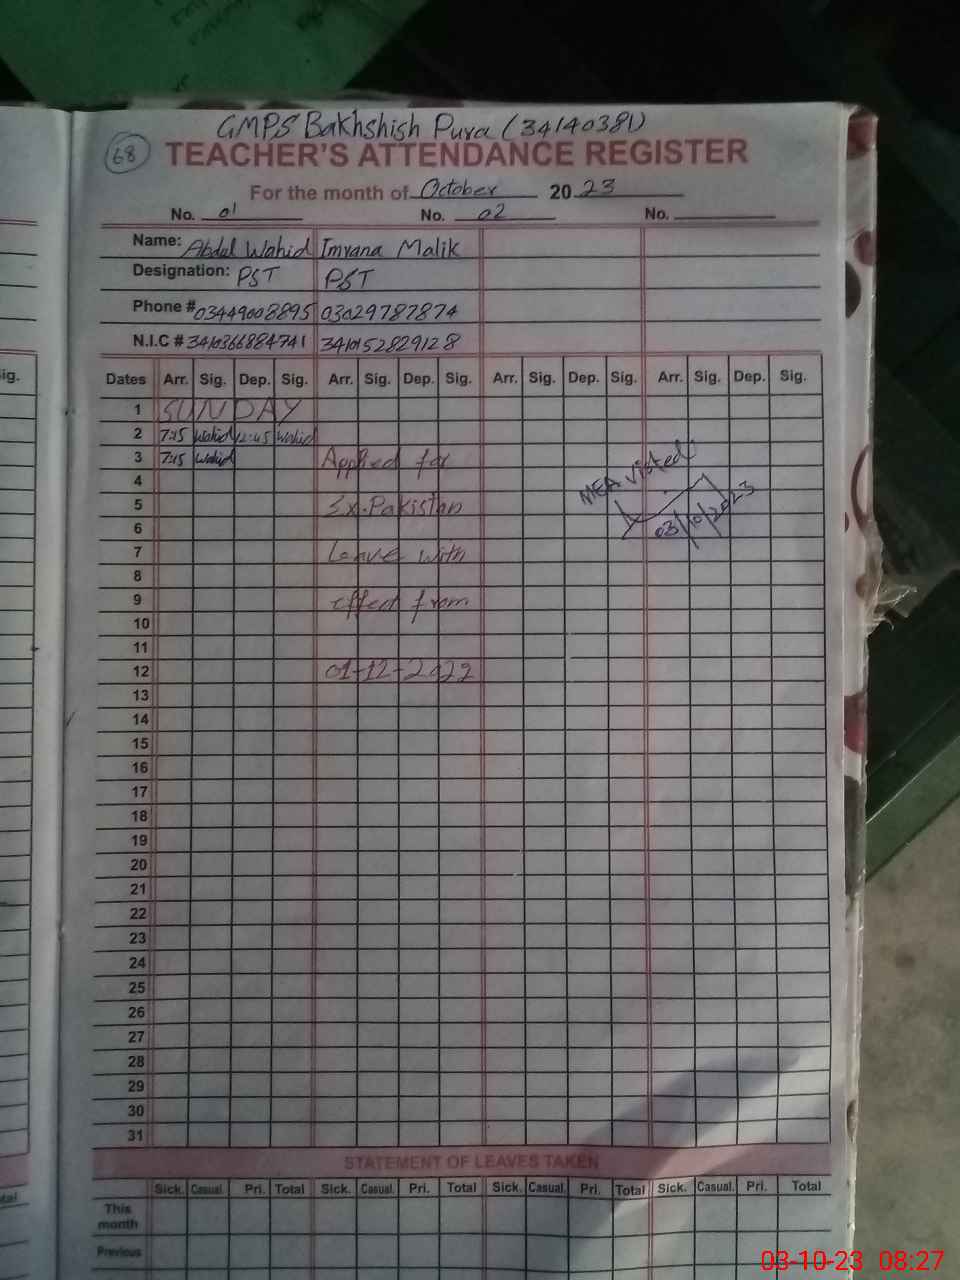 GMPS Bakhshish Pura (34140381)
68
TEACHER'S ATTENDANCE REGISTER
For the month of October 2023
No. 01 No. 02 No.
Name: Abdul Wahid Imrana Malik
Designation: PST PST
Phone # 03449008895 03029787874
N.I.C # 3410366884741 3410152829128
Dates Arr. Sig. Dep. Sig. Arr. Sig. Dep. Sig. Arr. Sig. Dep. Sig. Arr. Sig. Dep. Sig.
1 SUNDAY
2 7:15 Wahid 12:45 Wahid
3 7:15 Wahid Applied for
MEA visited
4
5 Ex-Pakistan
03/10/2023
6
7 Leave with
8
9 effect from
10
11
12 01-12-2022
13
14
15
16
17
18
19
20
21
22
23
24
25
26
27
28
29
30
31
STATEMENT OF LEAVES TAKEN
Sick. Casual. Pri. Total Sick. Casual. Pri. Total Sick. Casual. Pri. Total Sick. Casual. Pri. Total
This month
Previous
03-10-23 08:27